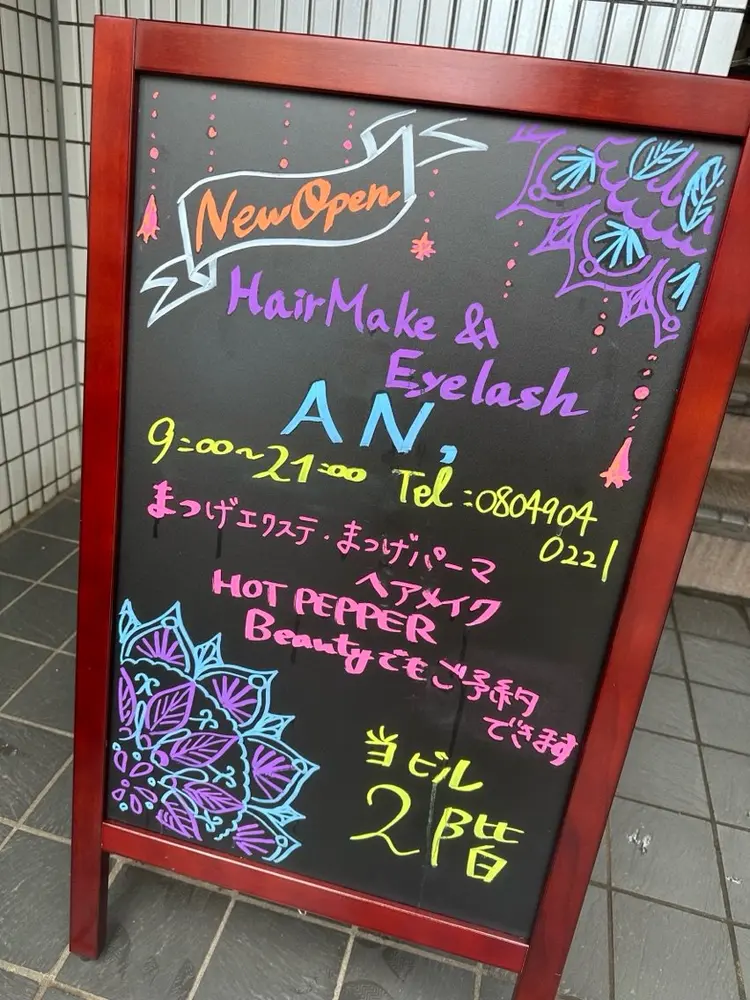 New Open
Hair Make &
Eyelash
AN,
9:00~21:00 Tel:0804904
0221
まつげエクステ・まつげパーマ
ヘアメイク
HOT PEPPER
Beautyでもご予約
できます
当ビル
2階